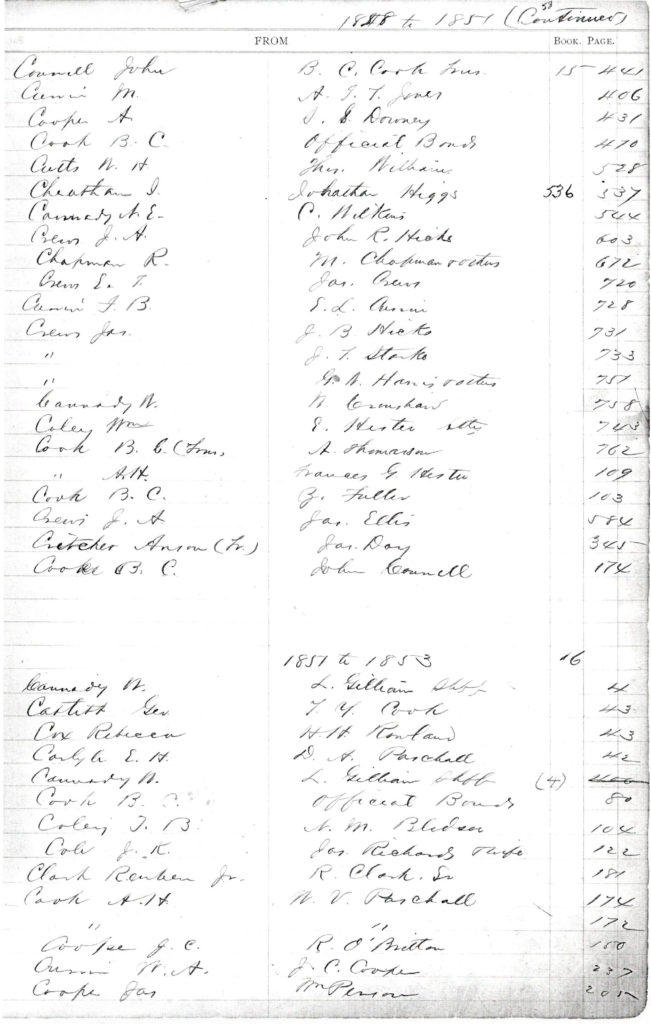 53
18 8 to 1851 (Continued)
FROM BOOK. PAGE.
Connell John B. C. Cook Trus. 15 441
M. A. Jones 406
Cooper A. Downey 431
Cook B. C. Official Bonds 470
Cutts W. H. Thos. William 528
Cheatham I. Johathan Higgs 536 537
Cannady N. E. C. Wilkins 544
Crews J. A. John R. Hicks 603
Chapman R. M. Chapman & others 672
Crews E. T. Jas. Crews 720
B. E. L. 728
Crews Jas. J. B Hicks 731
" J. T. Starke 733
" Harris & others 751
Cannady W. Crenshaw 758
Coley Wm E. Hester 743
Cook B. C. (Trus. A. Thomasson 762
" A. H. Frances G Hester 109
Cook B. C. Z. Fuller 103
Crews J. A Jas. Ellis 584
Cretcher Anson (Tr.) Jas. Day 345
Cooke B. C. John Connell 174
1851 to 1853 16
Cannady W. L. Gilliam Shff 4
Geo Cook 43
Cox Rebecca H H Rowland 43
Carlyle E. H. D. A. Paschall 42
Cannady W. L. Gilliam Shff (4)
Cook B. C. Official Bonds 80
Coley T. B. N. M. Bledsoe 104
Cole J. K. Jas. Richards & wife 122
Clark Reuben Jr. R. Clark. Sr 181
Cook A. H. W. V. Paschall 174
" " 172
J. C. R. O'Britton 100
W. A. J. C. Cooper 237
Cooper Jas Wm Person 205